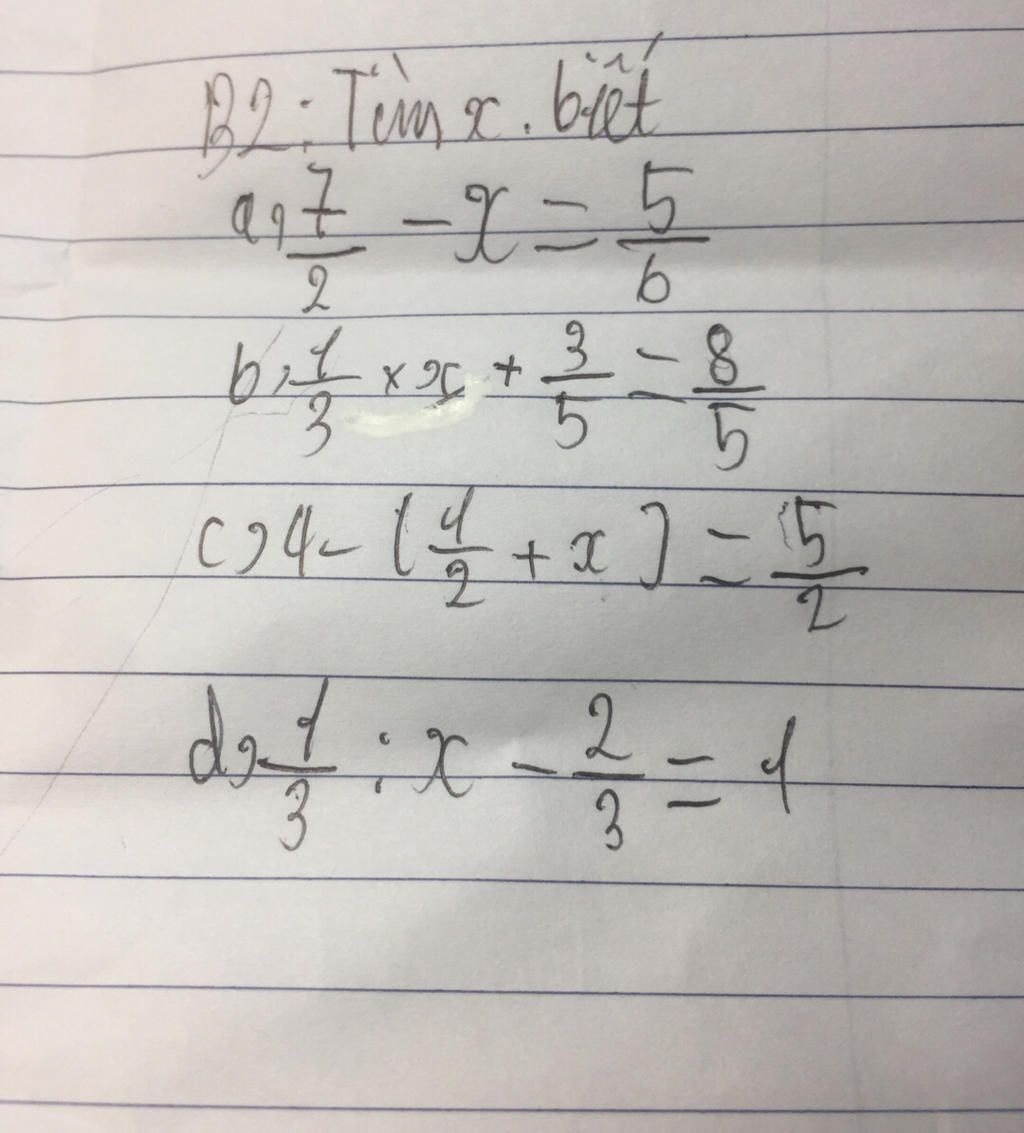 B2: Tìm x. biết
a, 7/2 - x = 5/6
b, 1/3 × x + 3/5 = 8/5
c) 4 - (1/2 + x) = 5/2
d, 1/3 : x - 2/3 = 1